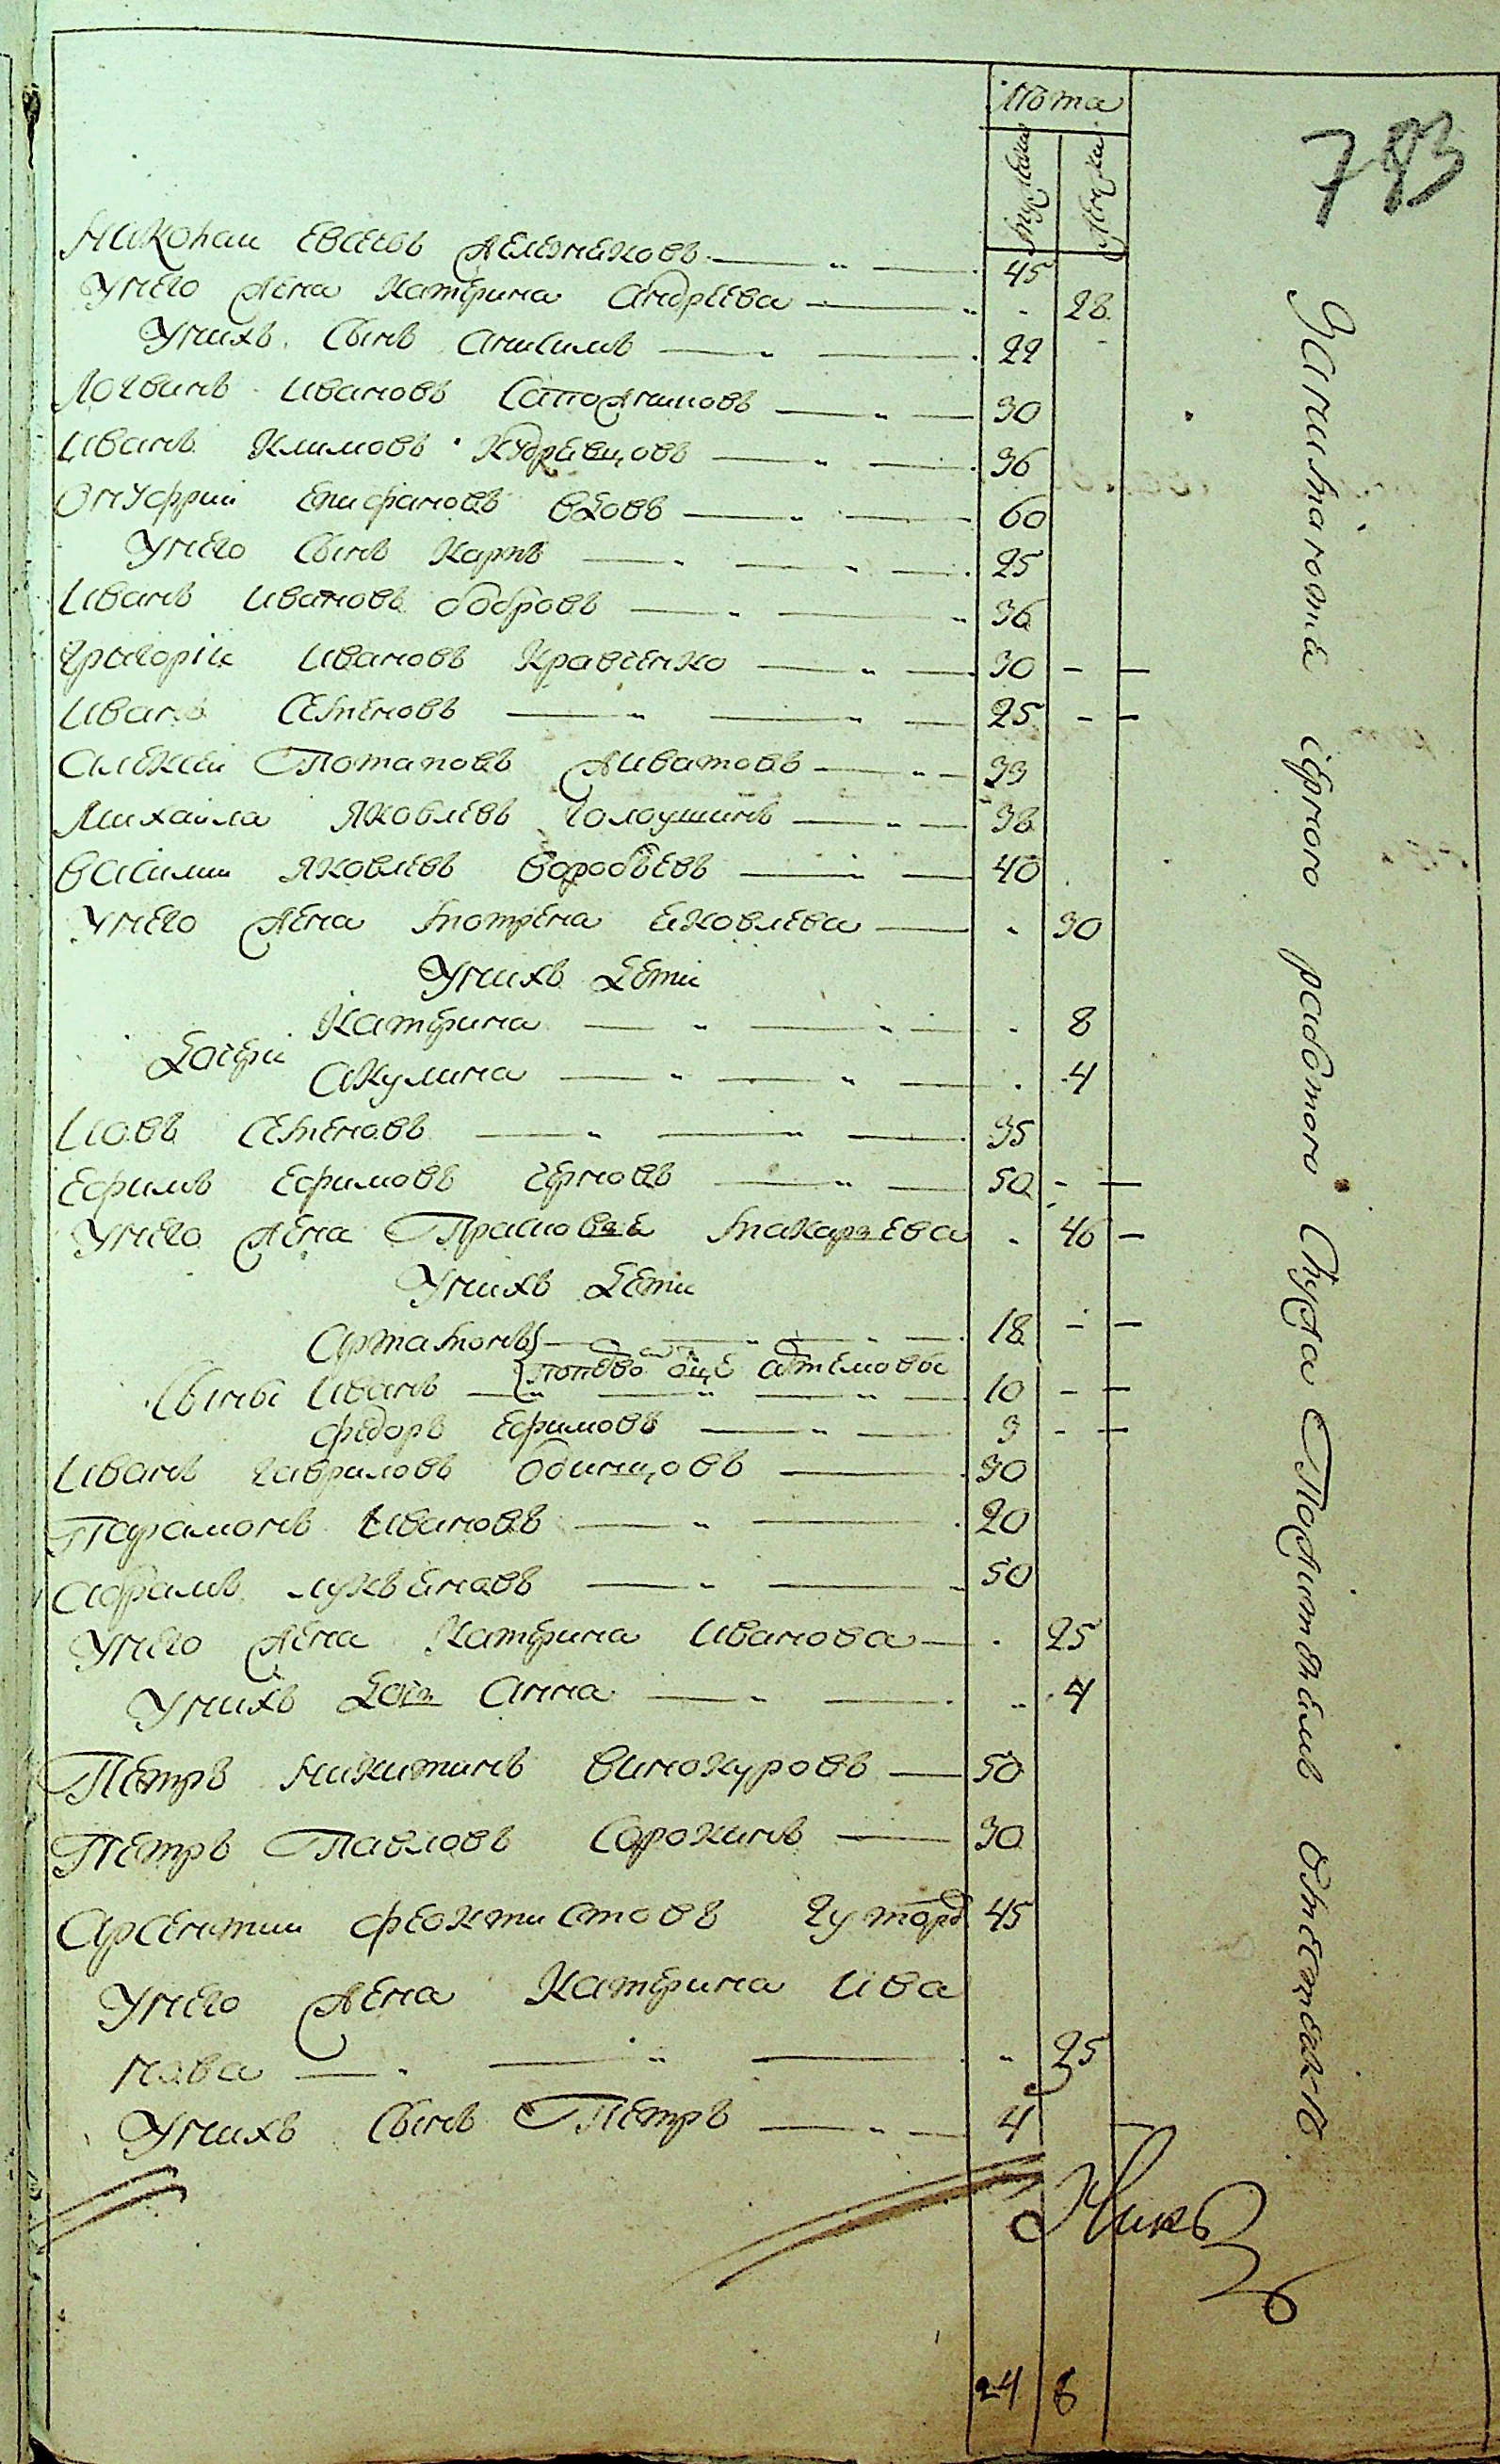 Лѣта
мужеска
женска
793
Николаи Евсеевъ Железняковъ 45
Унего жена Катерина андреева 28
Унихъ Сынъ анисимъ 22
Логвинъ ивановъ Сапожниковъ 30
Иванъ Климовъ Кудревцовъ 36
Онуфрии Епифановъ вдовъ 60
Унего Сынъ Карпъ 25
Иванъ ивановъ бобровъ 36
григорiи ивановъ Кравченко 30
иванъ Семеновъ 25
алексеи Потаповъ Ливатовъ 33
михаила Яковлевъ голоушинъ 38
василии Яковлевъ воробьевъ 40
Унего жена мотрена Яковлева 30
Унихъ дети
Катерина 8
дочери
акулина 4
Иовъ Семеновъ 35
Ефимъ Ефимовъ черновъ 50
Унего жена Прасковея макарьева 46
Унихъ дети
артамонъ 18
поподворю артемовы
Сыны иванъ 10
федоръ Ефимовъ 3
Иванъ гавриловъ Одинцовъ 30
Парамонъ ивановъ 20
абрамъ лукьяновъ 50
Унего жена Катерина иванова 25
Унихъ дочь анна 4
Петръ никитинъ винокуровъ 50
Петръ Павловъ Сорокинъ 30
арсентии феоктистовъ гуторъ 45
Унего жена Катерина ива
нова 25
Унихъ Сынъ Петръ 4
24 8
Закапитана черного работного Служа Пожитейнымъ